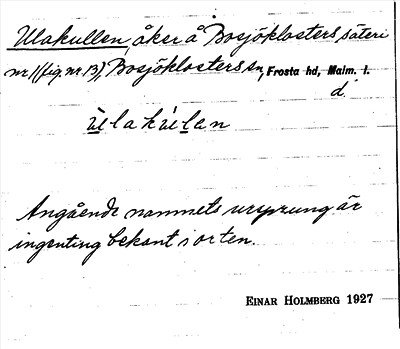 Ulakullen, åker å Bosjöklosters säteri
nr 1 (fig. nr 13), Bosjöklosters sn, Frosta hd, Malm. l.
d.
ùlakùlan
Angående namnets ursprung är
ingenting bekant i orten.
EINAR HOLMBERG 1927